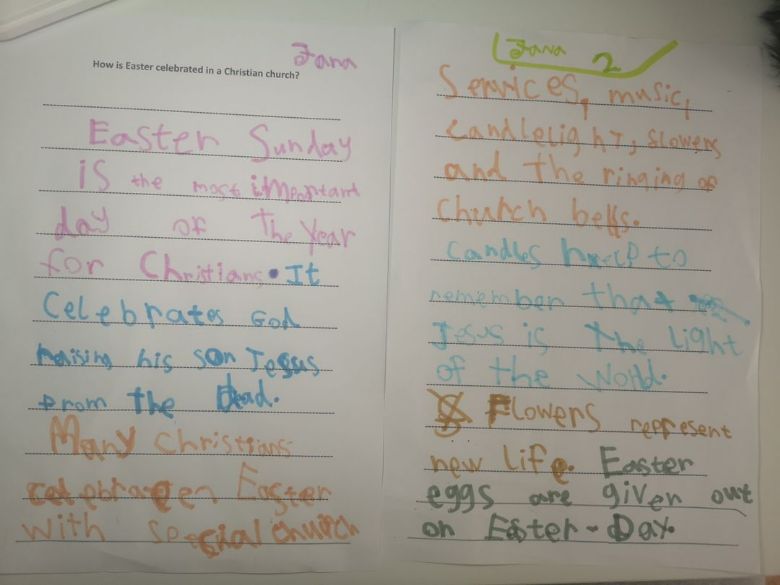 Jana
How is Easter celebrated in a Christian church?
Easter Sunday
is the most important
day of The Year
for Christians. It
Celebrates God
raising his son Jesus
from the Dead.
Many Christians
celebraten Easter
with special church
Jana 2
Services, music,
candlelight, flowers
and the ringing of
Church bells.
Candles help to
remember that
Jesus is The Light
of the World.
Flowers represent
new life. Easter
eggs are given out
on Easter-Day.